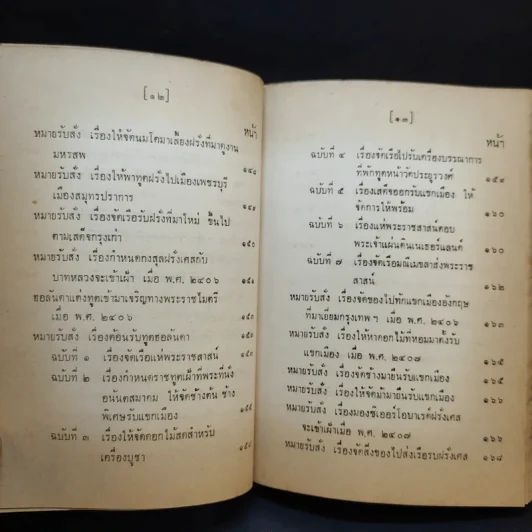 [๑๒]
หน้า
หมายรับสั่ง เรื่องให้จัดนมโคมาเลี้ยงฝรั่งที่มาดูงาน
มหรสพ ๑๔๘
หมายรับสั่ง เรื่องให้พาทูตฝรั่งไปเมืองเพชรบุรี
เมืองสมุทรปราการ ๑๔๙
หมายรับสั่ง เรื่องจัดเรือรับฝรั่งที่มาใหม่ ขึ้นไป
ตามเสด็จกรุงเก่า ๑๕๐
หมายรับสั่ง เรื่องกำหนดกงสุลฝรั่งเศสกับ
บาทหลวงจะเข้าเฝ้า เมื่อ พ.ศ. ๒๔๐๖ ๑๕๑
ฮอลันดาแต่งทูตเข้ามาเจริญทางพระราชไมตรี
เมื่อ พ.ศ. ๒๔๐๖ ๑๕๓
หมายรับสั่ง เรื่องต้อนรับทูตฮอลันดา ๑๕๓
ฉบับที่ ๑ เรื่องจัดเรือแห่พระราชสาสน์ ๑๕๓
ฉบับที่ ๒ เรื่องกำหนดราชทูตเฝ้าที่พระที่นั่ง
อนันตสมาคม ให้จัดช้างต้น ช้าง
พิเศษรับแขกเมือง ๑๕๕
ฉบับที่ ๓ เรื่องให้จัดดอกไม้สดสำหรับ
เครื่องบูชา ๑๕๘
[๑๓]
หน้า
ฉบับที่ ๔ เรื่องจัดเรือไปรับเครื่องบรรณาการ
ที่พักทูตหน้าวัดประยูรวงศ์ ๑๕๙
ฉบับที่ ๕ เรื่องเสด็จออกรับแขกเมือง ให้
จัดการให้พร้อม ๑๖๐
ฉบับที่ ๖ เรื่องแห่พระราชสาสน์ตอบ
พระเจ้าแผ่นดินเนเธอร์แลนด์ ๑๖๐
ฉบับที่ ๗ เรื่องจัดเรือมณีเมขลาส่งพระราช
สาสน์ ๑๖๒
หมายรับสั่ง เรื่องจัดของไปทักแขกเมืองอังกฤษ
ที่มาเยี่ยมกรุงเทพฯ เมื่อ พ.ศ. ๒๔๐๖ ๑๖๓
หมายรับสั่ง เรื่องให้หาดอกไม้ที่หอมมาตั้งรับ
แขกเมือง เมื่อ พ.ศ. ๒๔๐๗ ๑๖๕
หมายรับสั่ง เรื่องจัดช้างมายืนรับแขกเมือง ๑๖๕
หมายรับสั่ง เรื่องให้จัดม้ามายืนรับแขกเมือง ๑๖๖
หมายรับสั่ง เรื่องมองซิเออร์โอบาเรต์ฝรั่งเศส
จะเข้าเฝ้าเมื่อ พ.ศ. ๒๔๐๗ ๑๖๖
หมายรับสั่ง เรื่องจัดสิ่งของไปส่งเรือรบฝรั่งเศส ๑๖๘